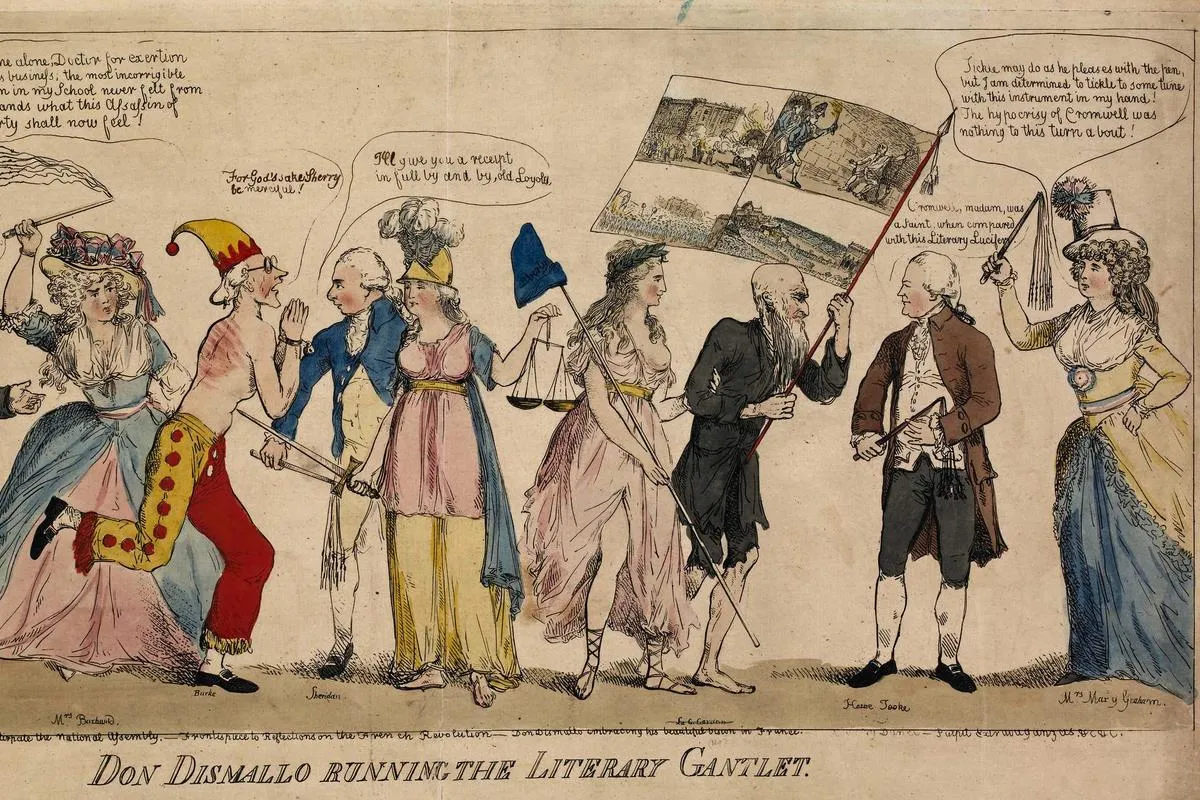 me alone, Doctor for exertion
s business, the most incorrigible
n in my School never felt from
ands what this Assassin of
rty shall now feel!
For God's sake Sherry
be merciful!
I'll give you a receipt
in full by and by, old Loyola
Tickle may do as he pleases with the pen,
but I am determined to tickle to some tune
with this instrument in my hand!
The hypocrisy of Cromwell was
nothing to this turn about!
Cromwell, madam, was
a Saint, when compared
with this Literary Lucifer
Mrs Barbauld.
Burke
Sheridan.
Horne Tooke
Mrs Mary Graham.
the National Assembly.— Frontispiece to Reflections on the French Revolution— Don Dismallo embracing his beautiful vision in France.
Pulpit Extravaganzas &c &c.
DON DISMALLO RUNNING THE LITERARY GANTLET.